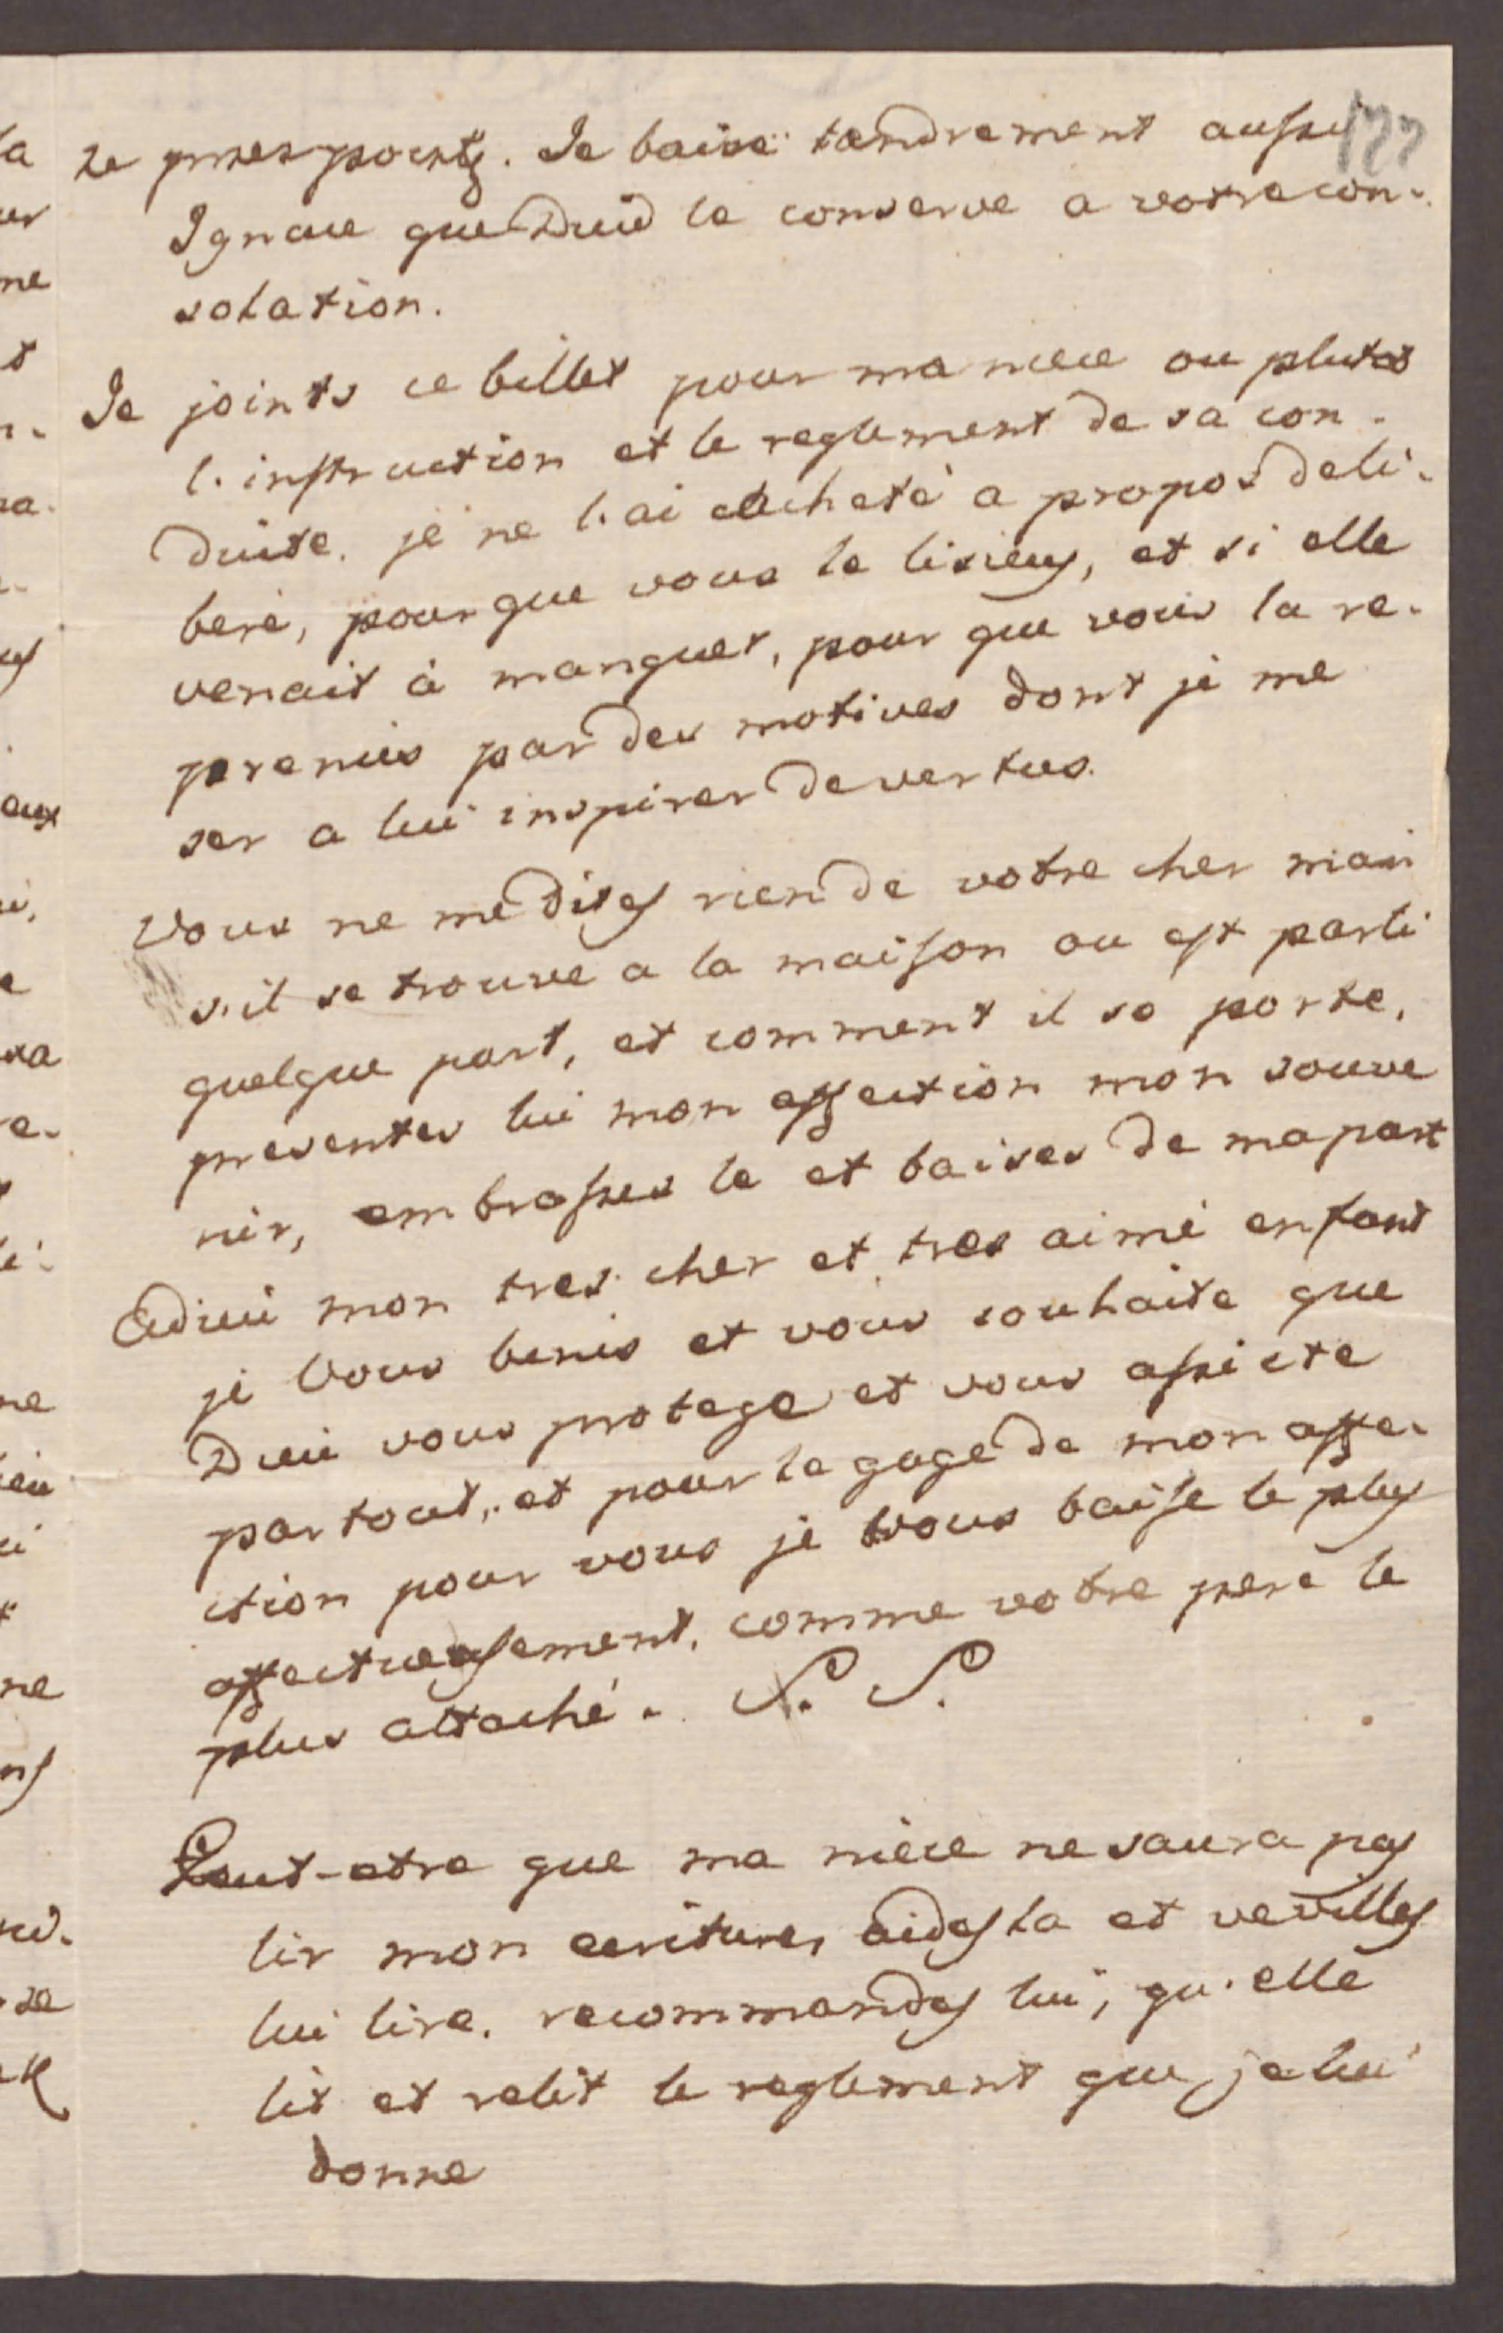 177
Je baise tendrement aussi
Ignace que Dieu le conserve a votre con-
solation.
Je joints ce billet pour ma niece ou plutot
l'instruction et le reglement de sa con-
duite. je ne l'ai cacheté a propos deli-
beré, pour que vous le lisiey, et si elle
venait à manquer, pour que vous la re-
preniés par des motives dont je me
ser a lui inspirer de vertus.
Vous ne me dites rien de votre cher mari
s'il se trouve a la maison ou est parti
quelque part, et comment il se porte,
presentes lui mon affection mon souve
nir, embrasses le et baises de ma part
Adieu mon tres cher et tres aimé enfant
je vous benis et vous souhaite que
Dieu vous protege et vous assiste
par tout, et pour le gage de mon affe-
ction pour vous je vous baise le plus
affectueusement, comme votre peré le
plus attaché. S. S.
Peut-etre que ma niéce ne saura pas
lir mon ecriture, aides la et veuilles
lui lire, recommandes lui, qu'elle
lit et relit le reglement que je lui
donne